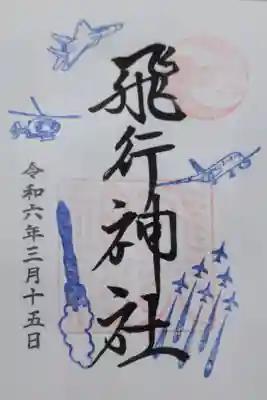 飛行神社
令和六年三月十五日